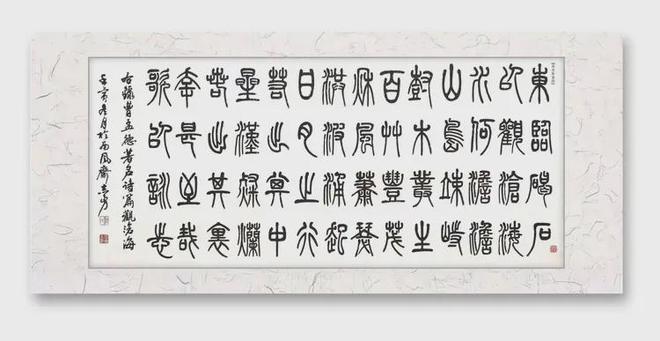 東臨碣石
以觀滄海
水何澹澹
山島竦峙
樹木叢生
百艸豐茂
秋風蕭瑟
洪波涌起
日月之行
若出其中
星漢燦爛
若出其裏
幸甚至哉
歌以詠志
右錄曹孟德著名詩篇觀滄海
壬寅冬月於風齋